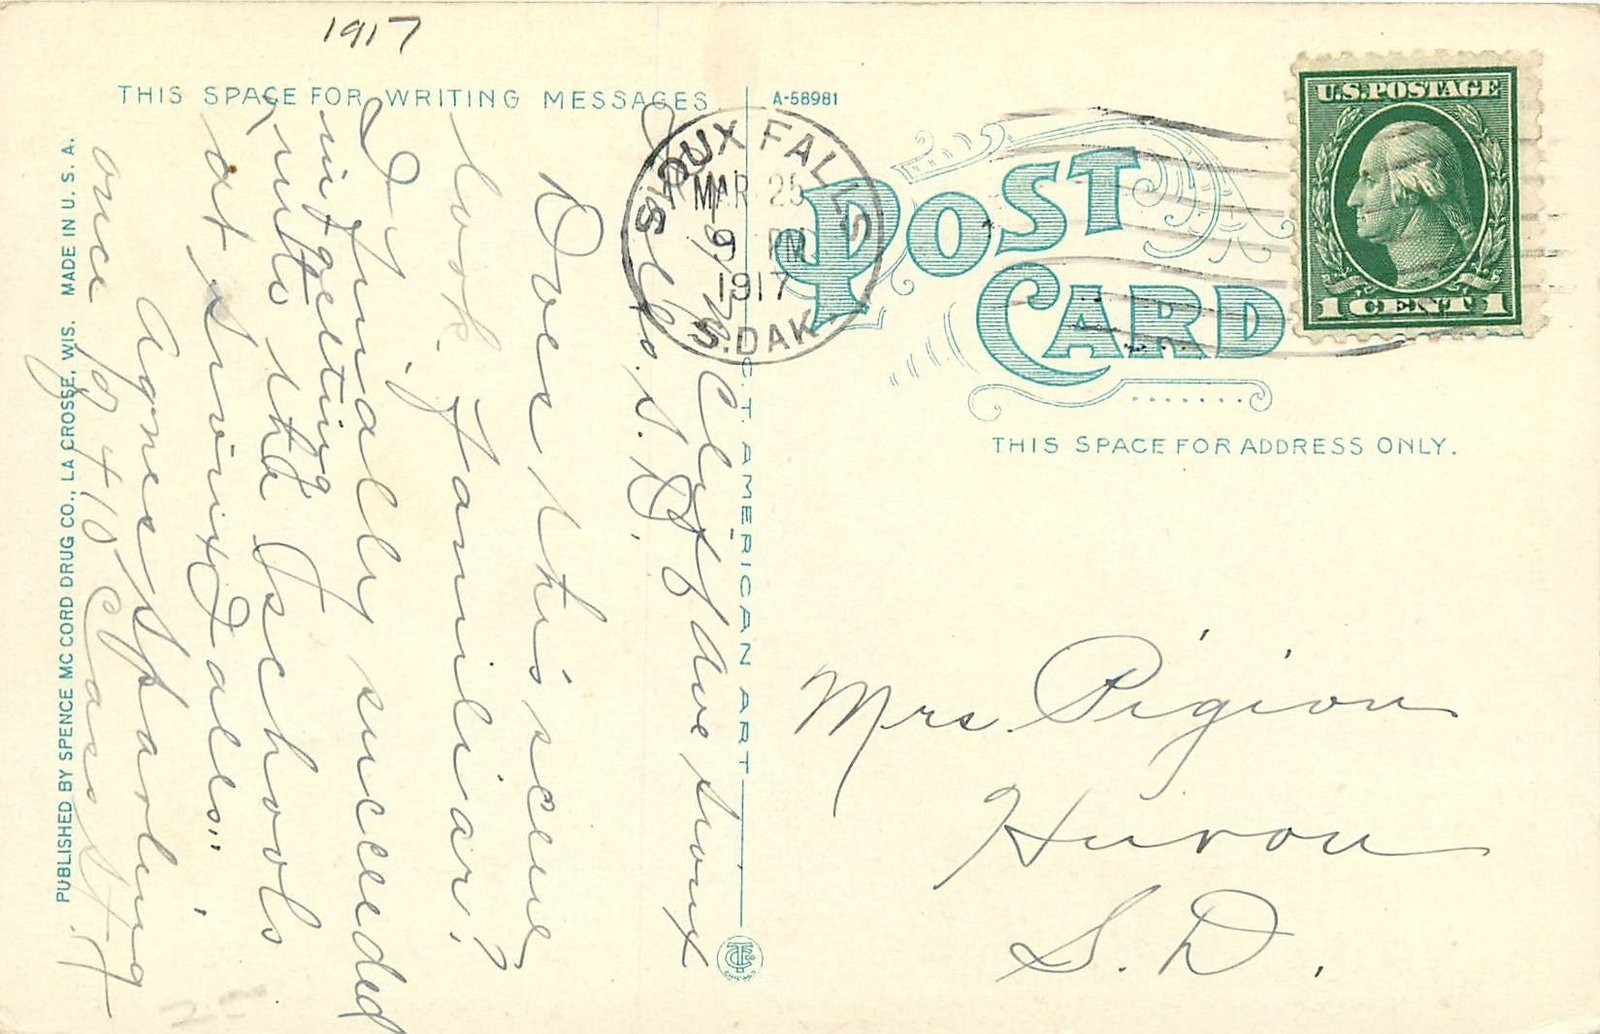 1917
THIS SPACE FOR WRITING MESSAGES
A-58981
SIOUX FALLS
MAR 25
9 PM
1917
S. DAK.
U.S. POSTAGE
1 CENT 1
POST
CARD
THIS SPACE FOR ADDRESS ONLY.
Mrs. Pigion
Huron
S. D.
Sioux
Falls. S. D.
Does this scene
look familiar?
I finally succeeded
in getting
into the schools
at Sioux Falls.
Agnes Sparling
once
C. T. AMERICAN ART
CHICAGO
PUBLISHED BY SPENCE MC CORD DRUG CO., LA CROSSE, WIS. MADE IN U. S. A.